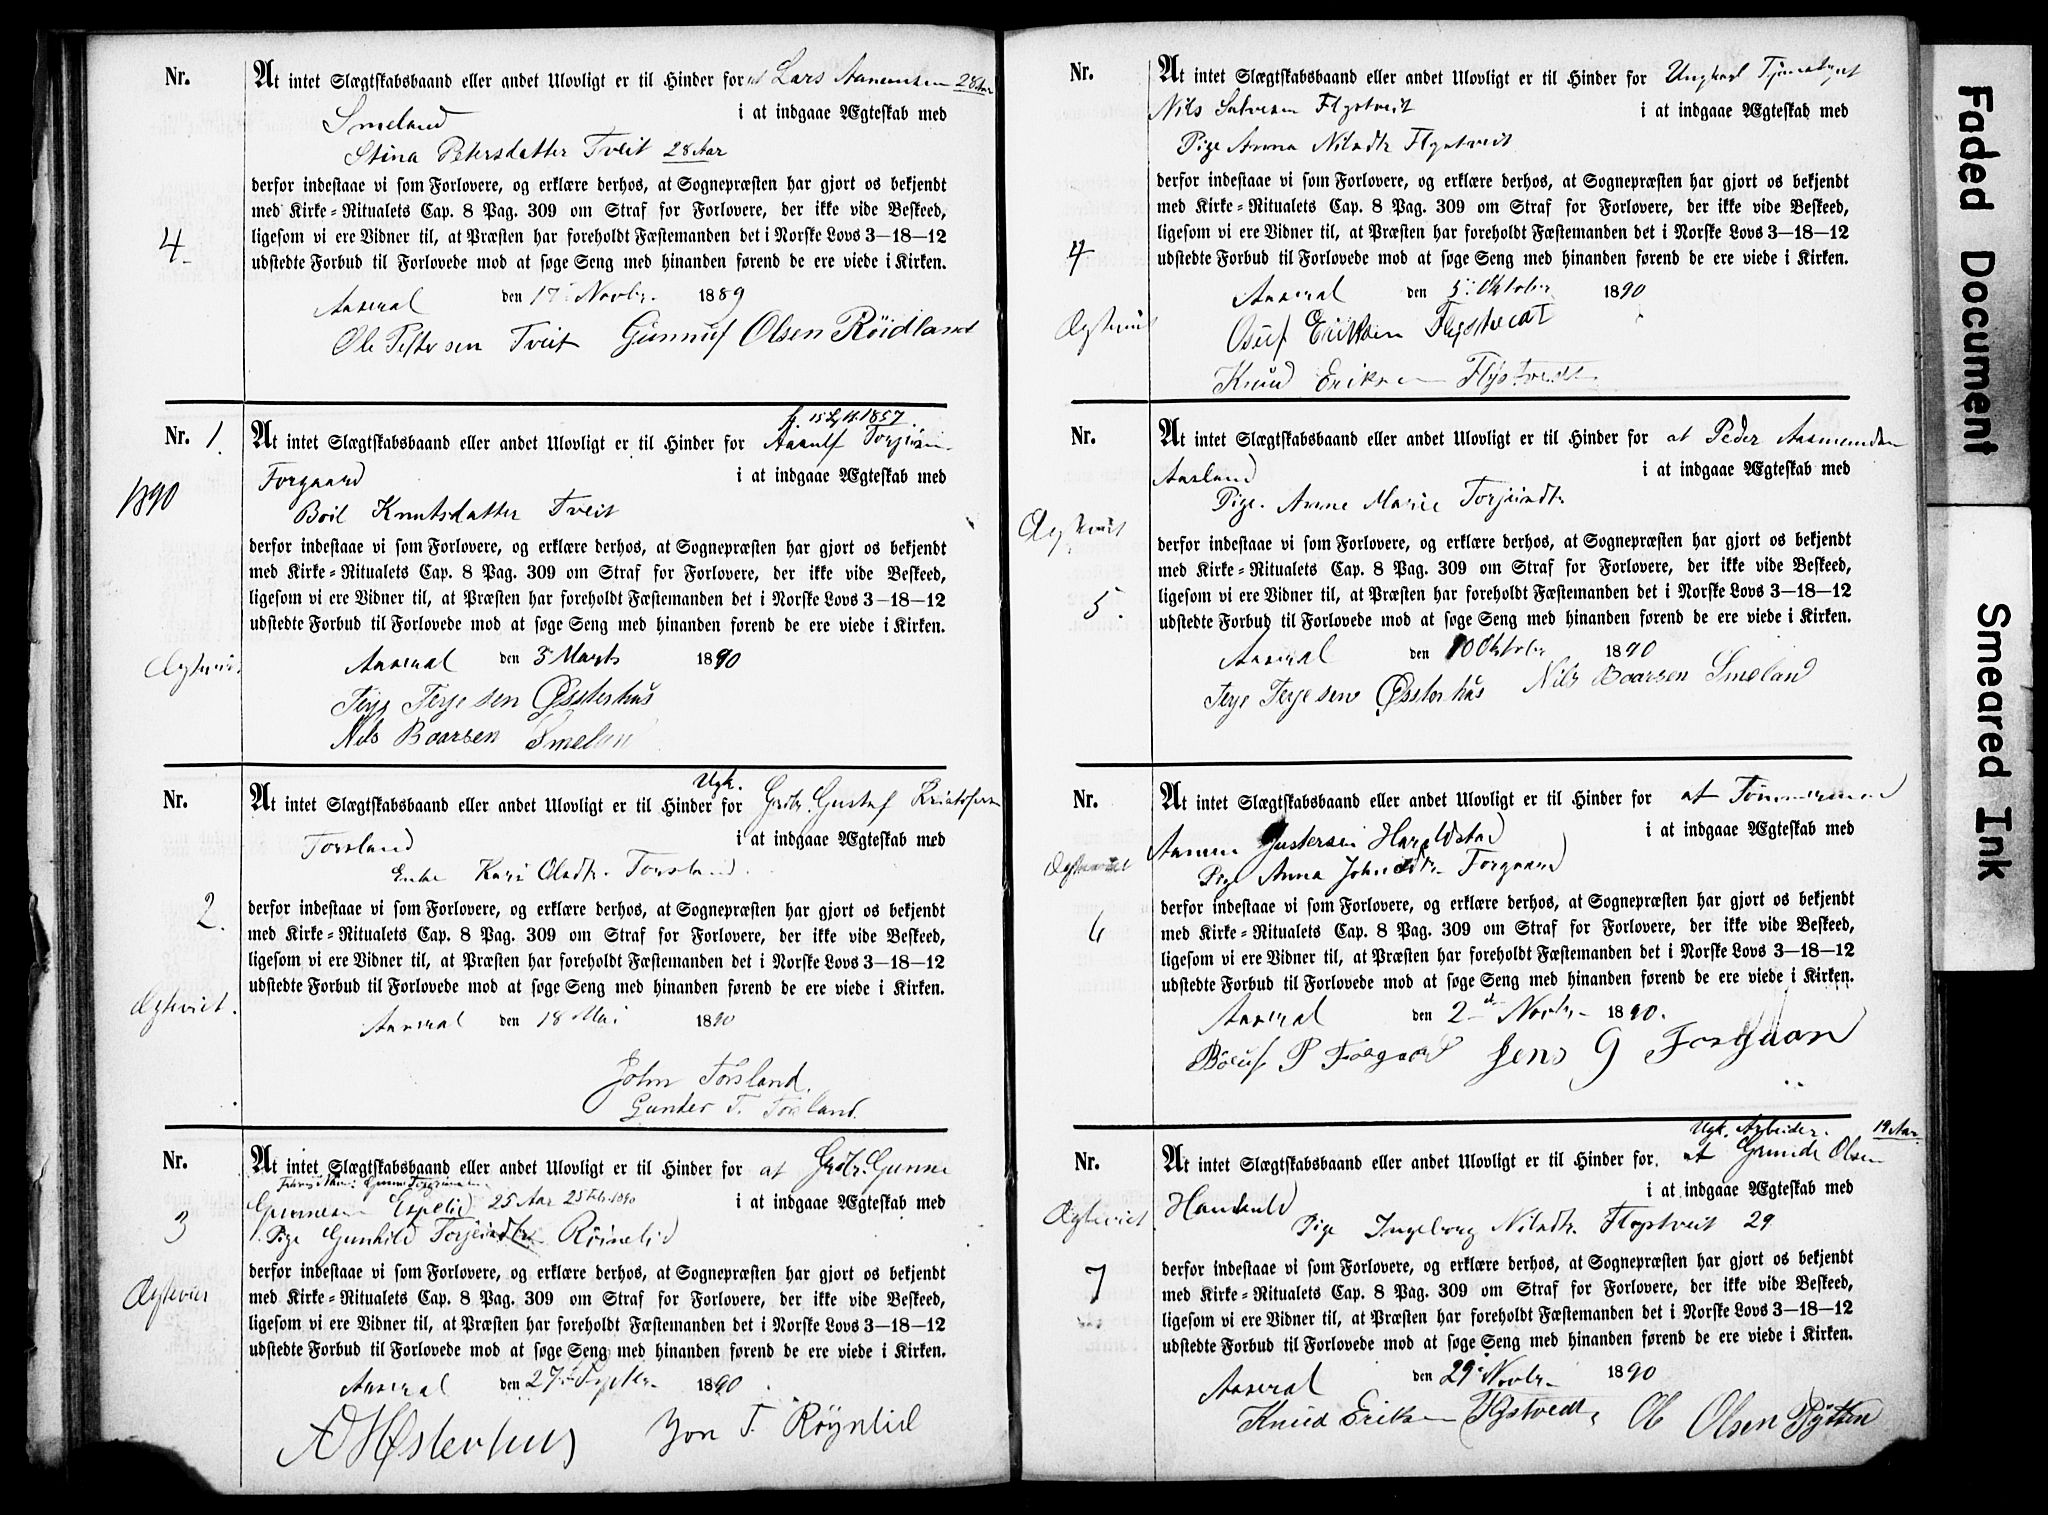 Nr.
At intet Slægtskabsbaand eller andet Ulovligt er til Hinder for at Lars Aanensen 28 Aar
Smeland i at indgaae Ægteskab med
Stina Petersdatter Tveit 28 Aar
derfor indestaae vi som Forlovere, og erklære derhos, at Sognepræsten har gjort os bekjendt
med Kirke-Ritualets Cap. 8 Pag. 309 om Straf for Forlovere, der ikke vide Beskeed,
4 ligesom vi ere Vidner til, at Præsten har foreholdt Fæstemanden det i Norske Lovs 3-18-12
udstedte Forbud til Forlovede mod at søge Seng med hinanden førend de ere viede i Kirken.
Aaseral den 17 Novbr. 1889
Ole Petersen Tveit Gunnuf Olsen Röidland
f. 1857
Nr. 1. At intet Slægtskabsbaand eller andet Ulovligt er til Hinder for Aanulf Torjusen
Forgaard i at indgaae Ægteskab med
1890
Boil Knutsdatter Tveit
derfor indestaae vi som Forlovere, og erklære derhos, at Sognepræsten har gjort os bekjendt
med Kirke-Ritualets Cap. 8 Pag. 309 om Straf for Forlovere, der ikke vide Beskeed,
ligesom vi ere Vidner til, at Præsten har foreholdt Fæstemanden det i Norske Lovs 3-18-12
udstedte Forbud til Forlovede mod at søge Seng med hinanden førend de ere viede i Kirken.
Ægteviet Aaseral den 3 Marts 1890
Terje Terjesen Øssterhus
Nils Baarsen Smeland
Ugk.
Nr. At intet Slægtskabsbaand eller andet Ulovligt er til Hinder for Grdbr. Gustaf Kristofersen
Torsland i at indgaae Ægteskab med
Enke Kari Olsdtr. Torsland.
derfor indestaae vi som Forlovere, og erklære derhos, at Sognepræsten har gjort os bekjendt
2. med Kirke-Ritualets Cap. 8 Pag. 309 om Straf for Forlovere, der ikke vide Beskeed,
ligesom vi ere Vidner til, at Præsten har foreholdt Fæstemanden det i Norske Lovs 3-18-12
udstedte Forbud til Forlovede mod at søge Seng med hinanden førend de ere viede i Kirken.
Ægteviet. Aaseral den 18 Mai 1890
John Torsland.
Gunder T. Torsland.
Nr. At intet Slægtskabsbaand eller andet Ulovligt er til Hinder for at Grdbr. Gunne
Gunnesen Espelid 25 Aar 25 Feb. 1890 i at indgaae Ægteskab med
3 Pige Gunhild Torjeidtr Röinelid
derfor indestaae vi som Forlovere, og erklære derhos, at Sognepræsten har gjort os bekjendt
Ægteviet med Kirke-Ritualets Cap. 8 Pag. 309 om Straf for Forlovere, der ikke vide Beskeed,
ligesom vi ere Vidner til, at Præsten har foreholdt Fæstemanden det i Norske Lovs 3-18-12
udstedte Forbud til Forlovede mod at søge Seng med hinanden førend de ere viede i Kirken.
Aaseral den 27 1890
Østerhus Jon T. Röynlid
Nr. At intet Slægtskabsbaand eller andet Ulovligt er til Hinder for Ungkarl
Nils Salvesen Flystveit i at indgaae Ægteskab med
Pige Anna Nilsdtr Flystveit
derfor indestaae vi som Forlovere, og erklære derhos, at Sognepræsten har gjort os bekjendt
med Kirke-Ritualets Cap. 8 Pag. 309 om Straf for Forlovere, der ikke vide Beskeed,
4 ligesom vi ere Vidner til, at Præsten har foreholdt Fæstemanden det i Norske Lovs 3-18-12
udstedte Forbud til Forlovede mod at søge Seng med hinanden førend de ere viede i Kirken.
Aaseral den 5 Oktober 1890
Ægteviet Osuf Eriksen Flystvedt
Knud Eriksen Flystvedt
Nr. At intet Slægtskabsbaand eller andet Ulovligt er til Hinder for at Peder Aasmundsen
Aasland i at indgaae Ægteskab med
Pige. Anne Marie Torjeidtr
Ægteviet derfor indestaae vi som Forlovere, og erklære derhos, at Sognepræsten har gjort os bekjendt
med Kirke-Ritualets Cap. 8 Pag. 309 om Straf for Forlovere, der ikke vide Beskeed,
5. ligesom vi ere Vidner til, at Præsten har foreholdt Fæstemanden det i Norske Lovs 3-18-12
udstedte Forbud til Forlovede mod at søge Seng med hinanden førend de ere viede i Kirken.
Aaseral den 10 Oktober 1890
Terje Terjesens Øssterhus Nils Baarsen Smeland
Nr. At intet Slægtskabsbaand eller andet Ulovligt er til Hinder for at Tømmermand
Aanen Gustersen Haraldstad i at indgaae Ægteskab med
Ægteviet Pige Anna Johnsdtr Forgaard
derfor indestaae vi som Forlovere, og erklære derhos, at Sognepræsten har gjort os bekjendt
6 med Kirke-Ritualets Cap. 8 Pag. 309 om Straf for Forlovere, der ikke vide Beskeed,
ligesom vi ere Vidner til, at Præsten har foreholdt Fæstemanden det i Norske Lovs 3-18-12
udstedte Forbud til Forlovede mod at søge Seng med hinanden førend de ere viede i Kirken.
Aaseral den 2den Novbr. 1890.
P Forgaard Jens G Forgaard
Ugk. Arbeider. 19 Aar
Nr. At intet Slægtskabsbaand eller andet Ulovligt er til Hinder for at Grunde Olsen
i at indgaae Ægteskab med
Ægteviet Pige Ingeborg Nilsdtr. Flystveit 29
derfor indestaae vi som Forlovere, og erklære derhos, at Sognepræsten har gjort os bekjendt
7 med Kirke-Ritualets Cap. 8 Pag. 309 om Straf for Forlovere, der ikke vide Beskeed,
ligesom vi ere Vidner til, at Præsten har foreholdt Fæstemanden det i Norske Lovs 3-18-12
udstedte Forbud til Forlovede mod at søge Seng med hinanden førend de ere viede i Kirken.
Aaseral den 29 Novbr 1890
Knud Eriksen Flystvedt, Ol Olsen Pytten
Faded Document
Smeared Ink